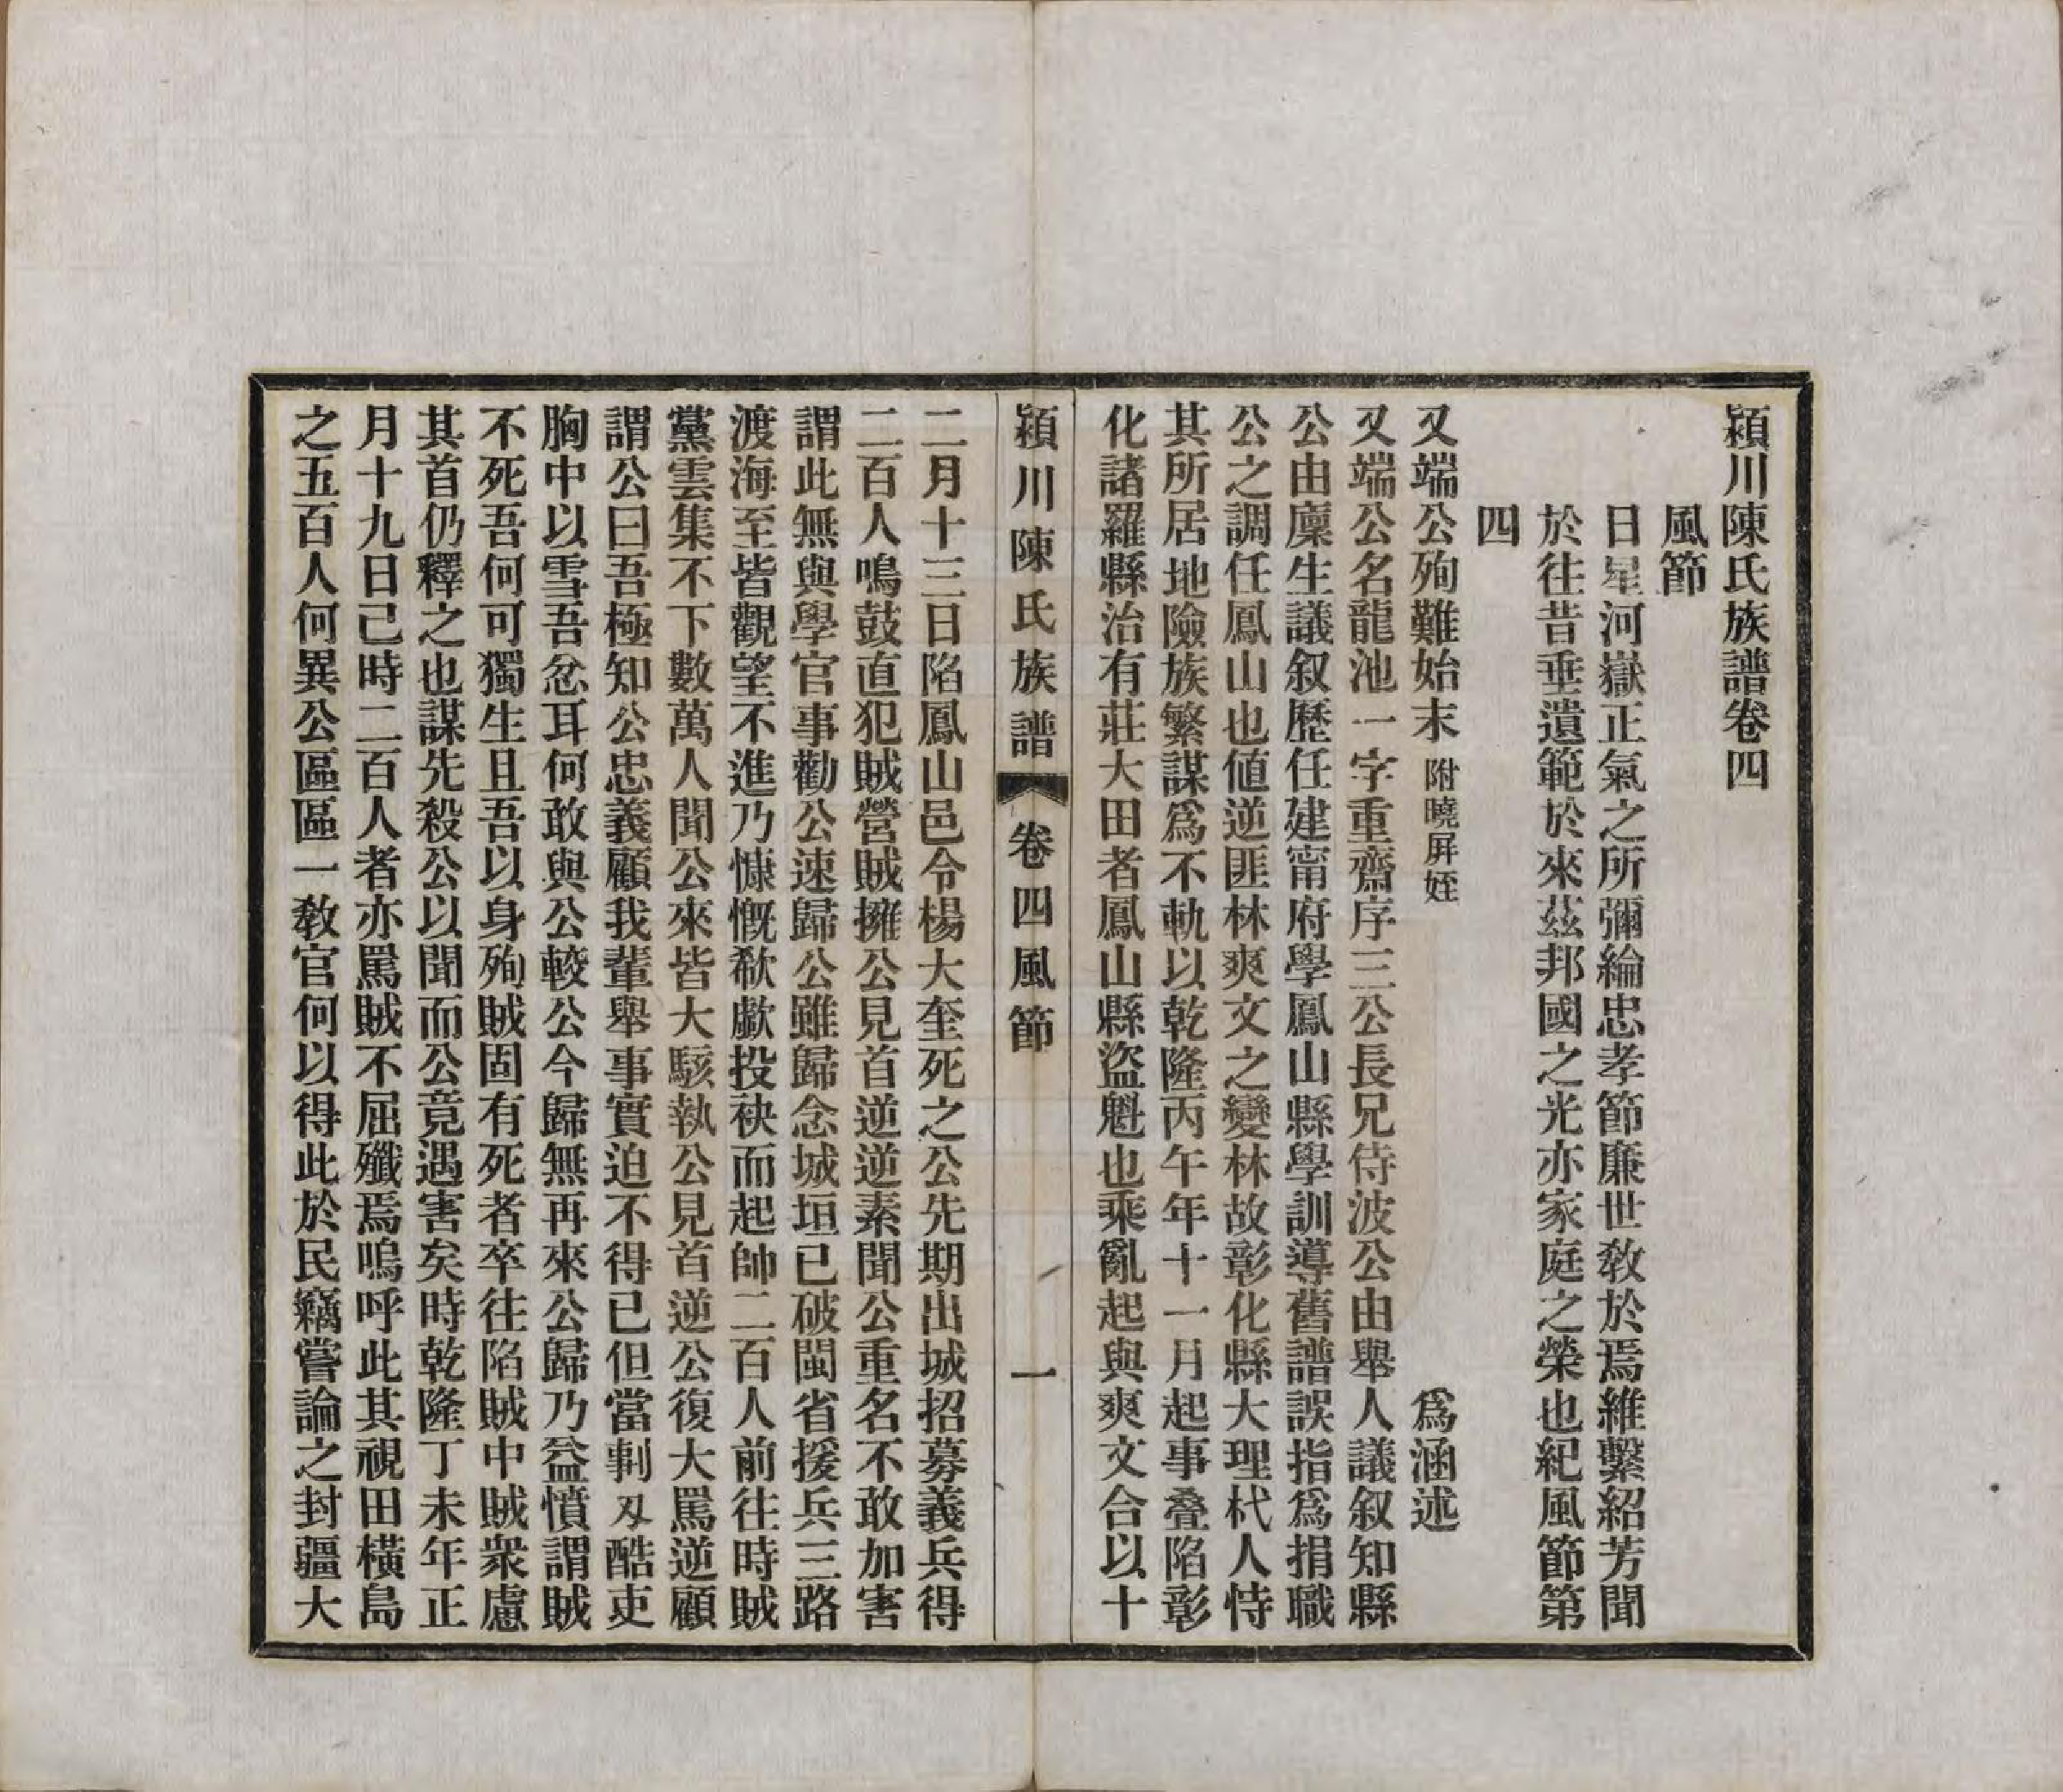 潁川陳氏族譜卷四
風節
日星河嶽正氣之所彌綸忠孝節廉世教於焉維繫紹芳聞
於往昔垂遺範於來茲邦國之光亦家庭之榮也紀風節第
四
又端公殉難始末 附曉屏姪 爲涵述
又端公名龍池一字重齋序三公長兄侍波公由舉人議叙知縣
公由廩生議叙歷任建甯府學鳳山縣學訓導舊譜誤指爲捐職
公之調任鳳山也値逆匪林爽文之變林故彰化縣大理杙人恃
其所居地險族繁謀爲不軌以乾隆丙午年十一月起事叠陷彰
化諸羅縣治有莊大田者鳳山縣盜魁也乘亂起與爽文合以十
潁川陳氏族譜 卷四風節 一
二月十三日陷鳳山邑令楊大奎死之公先期出城招募義兵得
二百人鳴鼓直犯賊營賊擁公見首逆逆素聞公重名不敢加害
謂此無與學官事勸公速歸公雖歸念城垣已破閩省援兵三路
渡海至皆觀望不進乃慷慨欷歔投袂而起帥二百人前往時賊
黨雲集不下數萬人聞公來皆大駭執公見首逆公復大罵逆顧
謂公曰吾極知公忠義顧我輩舉事實迫不得已但當剚刄酷吏
胸中以雪吾忿耳何敢與公較公今歸無再來公歸乃益憤謂賊
不死吾何可獨生且吾以身殉賊固有死者卒往陷賊中賊衆慮
其首仍釋之也謀先殺公以聞而公竟遇害矣時乾隆丁未年正
月十九日己時二百人者亦罵賊不屈殲焉嗚呼此其視田橫島
之五百人何異公區區一教官何以得此於民竊嘗論之封疆大